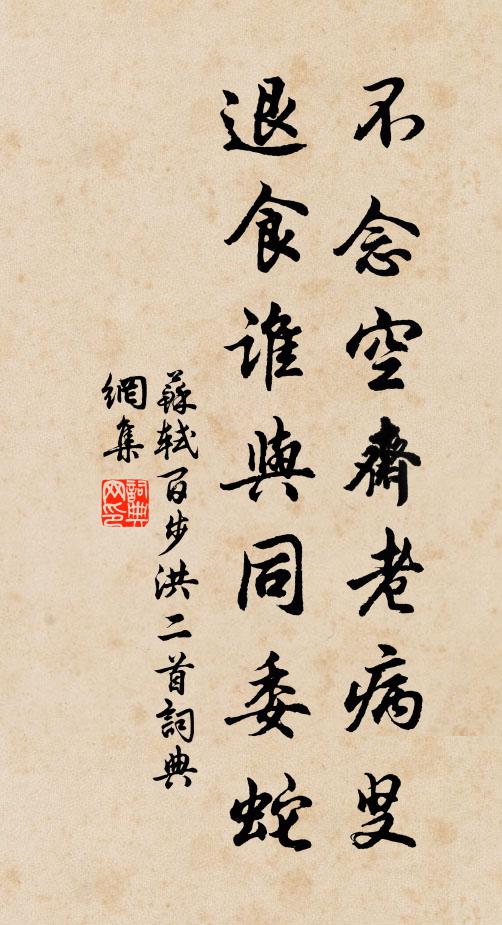 不念空齋老病叟
退食誰與同委蛇
蘇軾百步洪二首詞典
網集
詞典
网印